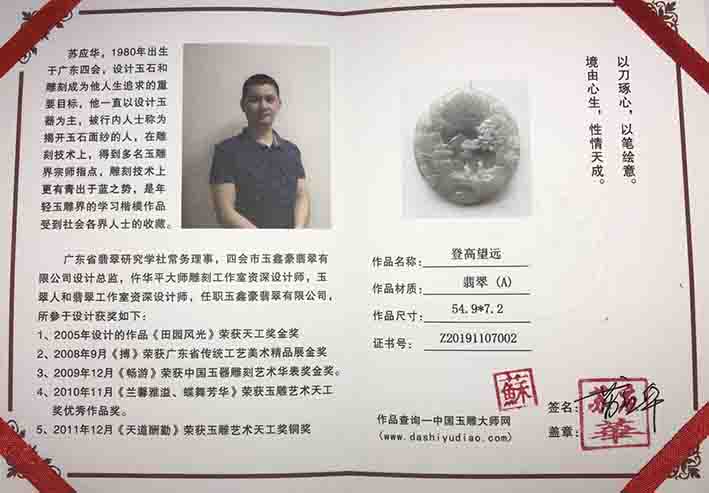 苏应华，1980年出生
于广东四会，设计玉石和
雕刻成为他人生追求的重
要目标，他一直以设计玉
器为主，被行内人士称为
揭开玉石面纱的人，在雕
刻技术上，得到多名玉雕
界宗师指点，雕刻技术上
更有青出于蓝之势，是年
轻玉雕界的学习楷模作品
受到社会各界人士的收藏。
广东省翡翠研究学社常务理事，四会市玉鑫豪翡翠有
限公司设计总监，仵华平大师雕刻工作室资深设计师，玉
翠人和翡翠工作室资深设计师，任职玉鑫豪翡翠有限公司，
所参于设计获奖如下：
1、2005年设计的作品《田园风光》荣获天工奖金奖
2、2008年9月《搏》荣获广东省传统工艺美术精品展金奖
3、2009年12月《畅游》荣获中国玉器雕刻艺术华表奖金奖。
4、2010年11月《兰馨雅溢、蝶舞芳华》荣获玉雕艺术天工
奖优秀作品奖。
5、2011年12月《天道酬勤》荣获玉雕艺术天工奖铜奖
以刀琢心，以笔绘意。
境由心生，性情天成。
作品名称：登高望远
作品材质：翡翠（A）
作品尺寸：54.9*7.2
证书号：Z20191107002
蘇
作品查询—中国玉雕大师网
(www.dashiyudiao.com)
签名：苏应华
盖章：苏应華